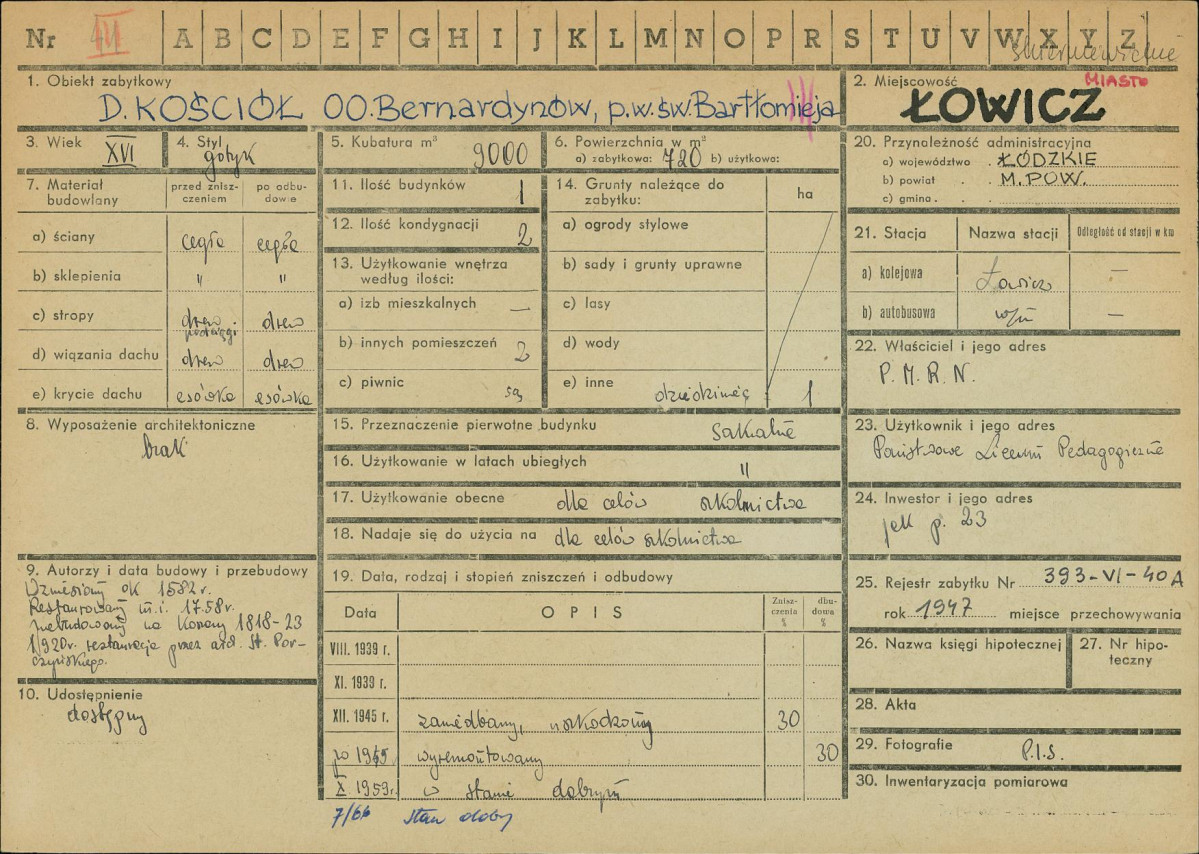 Nr III A B C D E F G H I J K L M N O P R S T U V W X Y Z
skierniewickie
1. Obiekt zabytkowy
D. KOŚCIÓŁ OO. Bernardynów, p.w. św. Bartłomieja
2. Miejscowość MIASTO
ŁOWICZ
3. Wiek XVI
4. Styl gotyk
5. Kubatura m³ 9000
6. Powierzchnia w m²
a) zabytkowa: 720 b) użytkowa:
7. Materiał budowlany
przed zniszczeniem
po odbudowie
a) ściany cegła cegła
b) sklepienia " "
c) stropy drewn podciągi drewn
d) wiązania dachu drewn drewn
e) krycie dachu esówka esówka
8. Wyposażenie architektoniczne
brak
9. Autorzy i data budowy i przebudowy
Wzniesiony ok 1582 r.
Restaurowany m.i. 1758 r.
Przebudowany na koszary 1818-23
1920 r. restauracja przez arch. St. Por-
czyńskiego.
10. Udostępnienie
dostępny
11. Ilość budynków 1
12. Ilość kondygnacji 2
13. Użytkowanie wnętrza
według ilości:
a) izb mieszkalnych —
b) innych pomieszczeń 2
c) piwnic są
14. Grunty należące do
zabytku: ha
a) ogrody stylowe
b) sady i grunty uprawne
c) lasy
d) wody
e) inne dziedziniec 1
15. Przeznaczenie pierwotne budynku sakralne
16. Użytkowanie w latach ubiegłych "
17. Użytkowanie obecne dla celów szkolnictwa
18. Nadaje się do użycia na dla celów szkolnictwa
19. Data, rodzaj i stopień zniszczeń i odbudowy
Data OPIS Zniszczenia % dbudowa %
VIII. 1939 r.
XI. 1939 r.
XII. 1945 r. zaniedbany, uszkodzony 30
po 1945 wyremontowany 30
X 1959 r. w stanie dobrym
7/66 stan dobry
20. Przynależność administracyjna
a) województwo . ŁÓDZKIE
b) powiat . . M. POW.
c) gmina . .
21. Stacja Nazwa stacji Odległość od stacji w km
a) kolejowa Łowicz —
b) autobusowa wm —
22. Właściciel i jego adres
P. M. R. N.
23. Użytkownik i jego adres
Państwowe Liceum Pedagogiczne
24. Inwestor i jego adres
jak p. 23
25. Rejestr zabytku Nr 393-VI-40A
rok 1947 miejsce przechowywania
26. Nazwa księgi hipotecznej
27. Nr hipo-
teczny
28. Akta
29. Fotografie P.I.S.
30. Inwentaryzacja pomiarowa